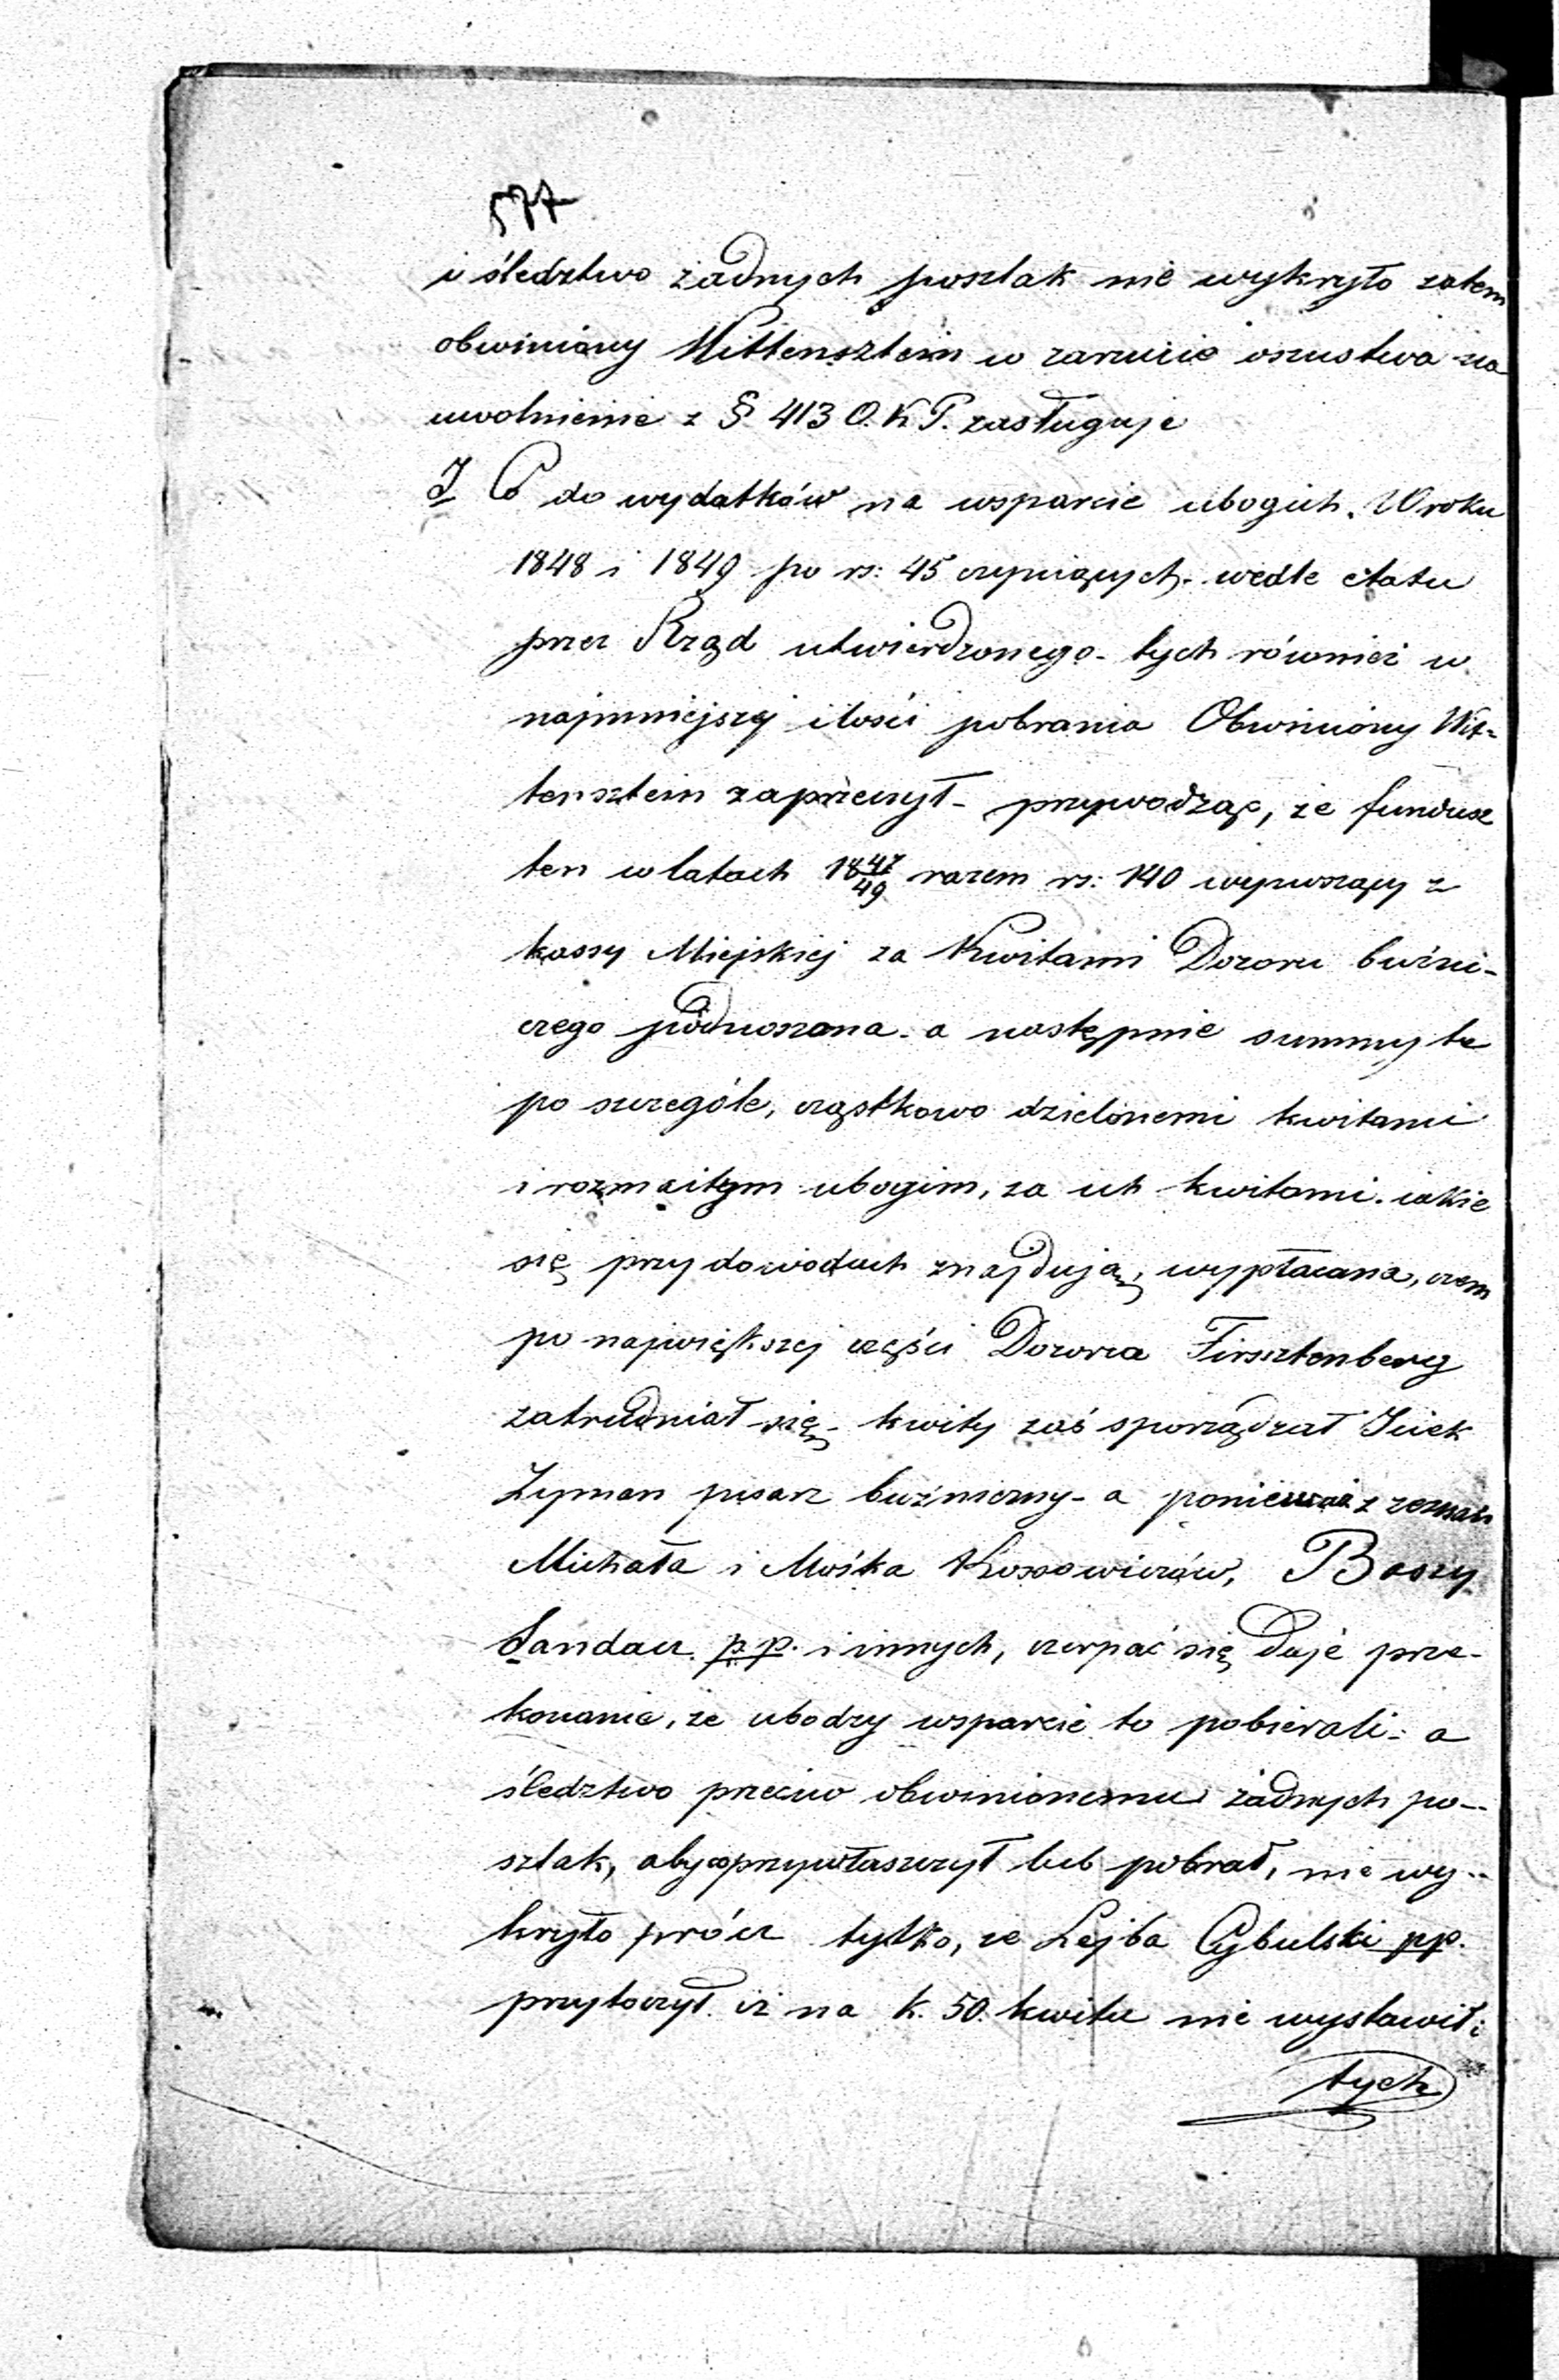 577
i śledztwo żadnych poszlak nie wykryło zatem
obwiniony Wittensztein w zarzucie oszustwa na
uwolnienie z § 413 O.K.P. zasługuje
I Co do wydatków na wsparcie ubogich. W roku
1848 i 1849 po rs: 45 czyniących - wedle etatu
przez Rząd utwierdzonego - tych również w
najmniejszej ilości pobrania Obwiniony Wit=
tensztein zaprzeczył - przywodząc, że fundusz
ten w latach 18 47/49 razem rs: 140 wynoszący z
kassy Miejskiej za Kwitami Dozoru bużni-
czego podnoszona - a następnie summy te
po szczególe, cząstkowo dzielonemi kwitami
i rozmaitym ubogim, za ich kwitami. jakie
się przy dowodach znajdują, wypłacana, czem
po największej części Dozorca Firsztenberg
zatrudniał się - kwity zaś sporządzał Icek
Zyman pisarz bużniczny - a ponieważ z zeznań
Michała i Mośka Kossowiczów, Baszy
Landau p.p. i innych, czerpać się daje prze-
konanie, że ubodzy wsparcie to pobierali - a
śledztwo przeciw obwinionemu żadnych po-
szlak, aby co przywłaszczył lub pobrał, nie wy-
kryło prócz tylko, że Lejba Cybulski pp.
przytoczył iż na k. 50. kwitu nie wystawił i
tych